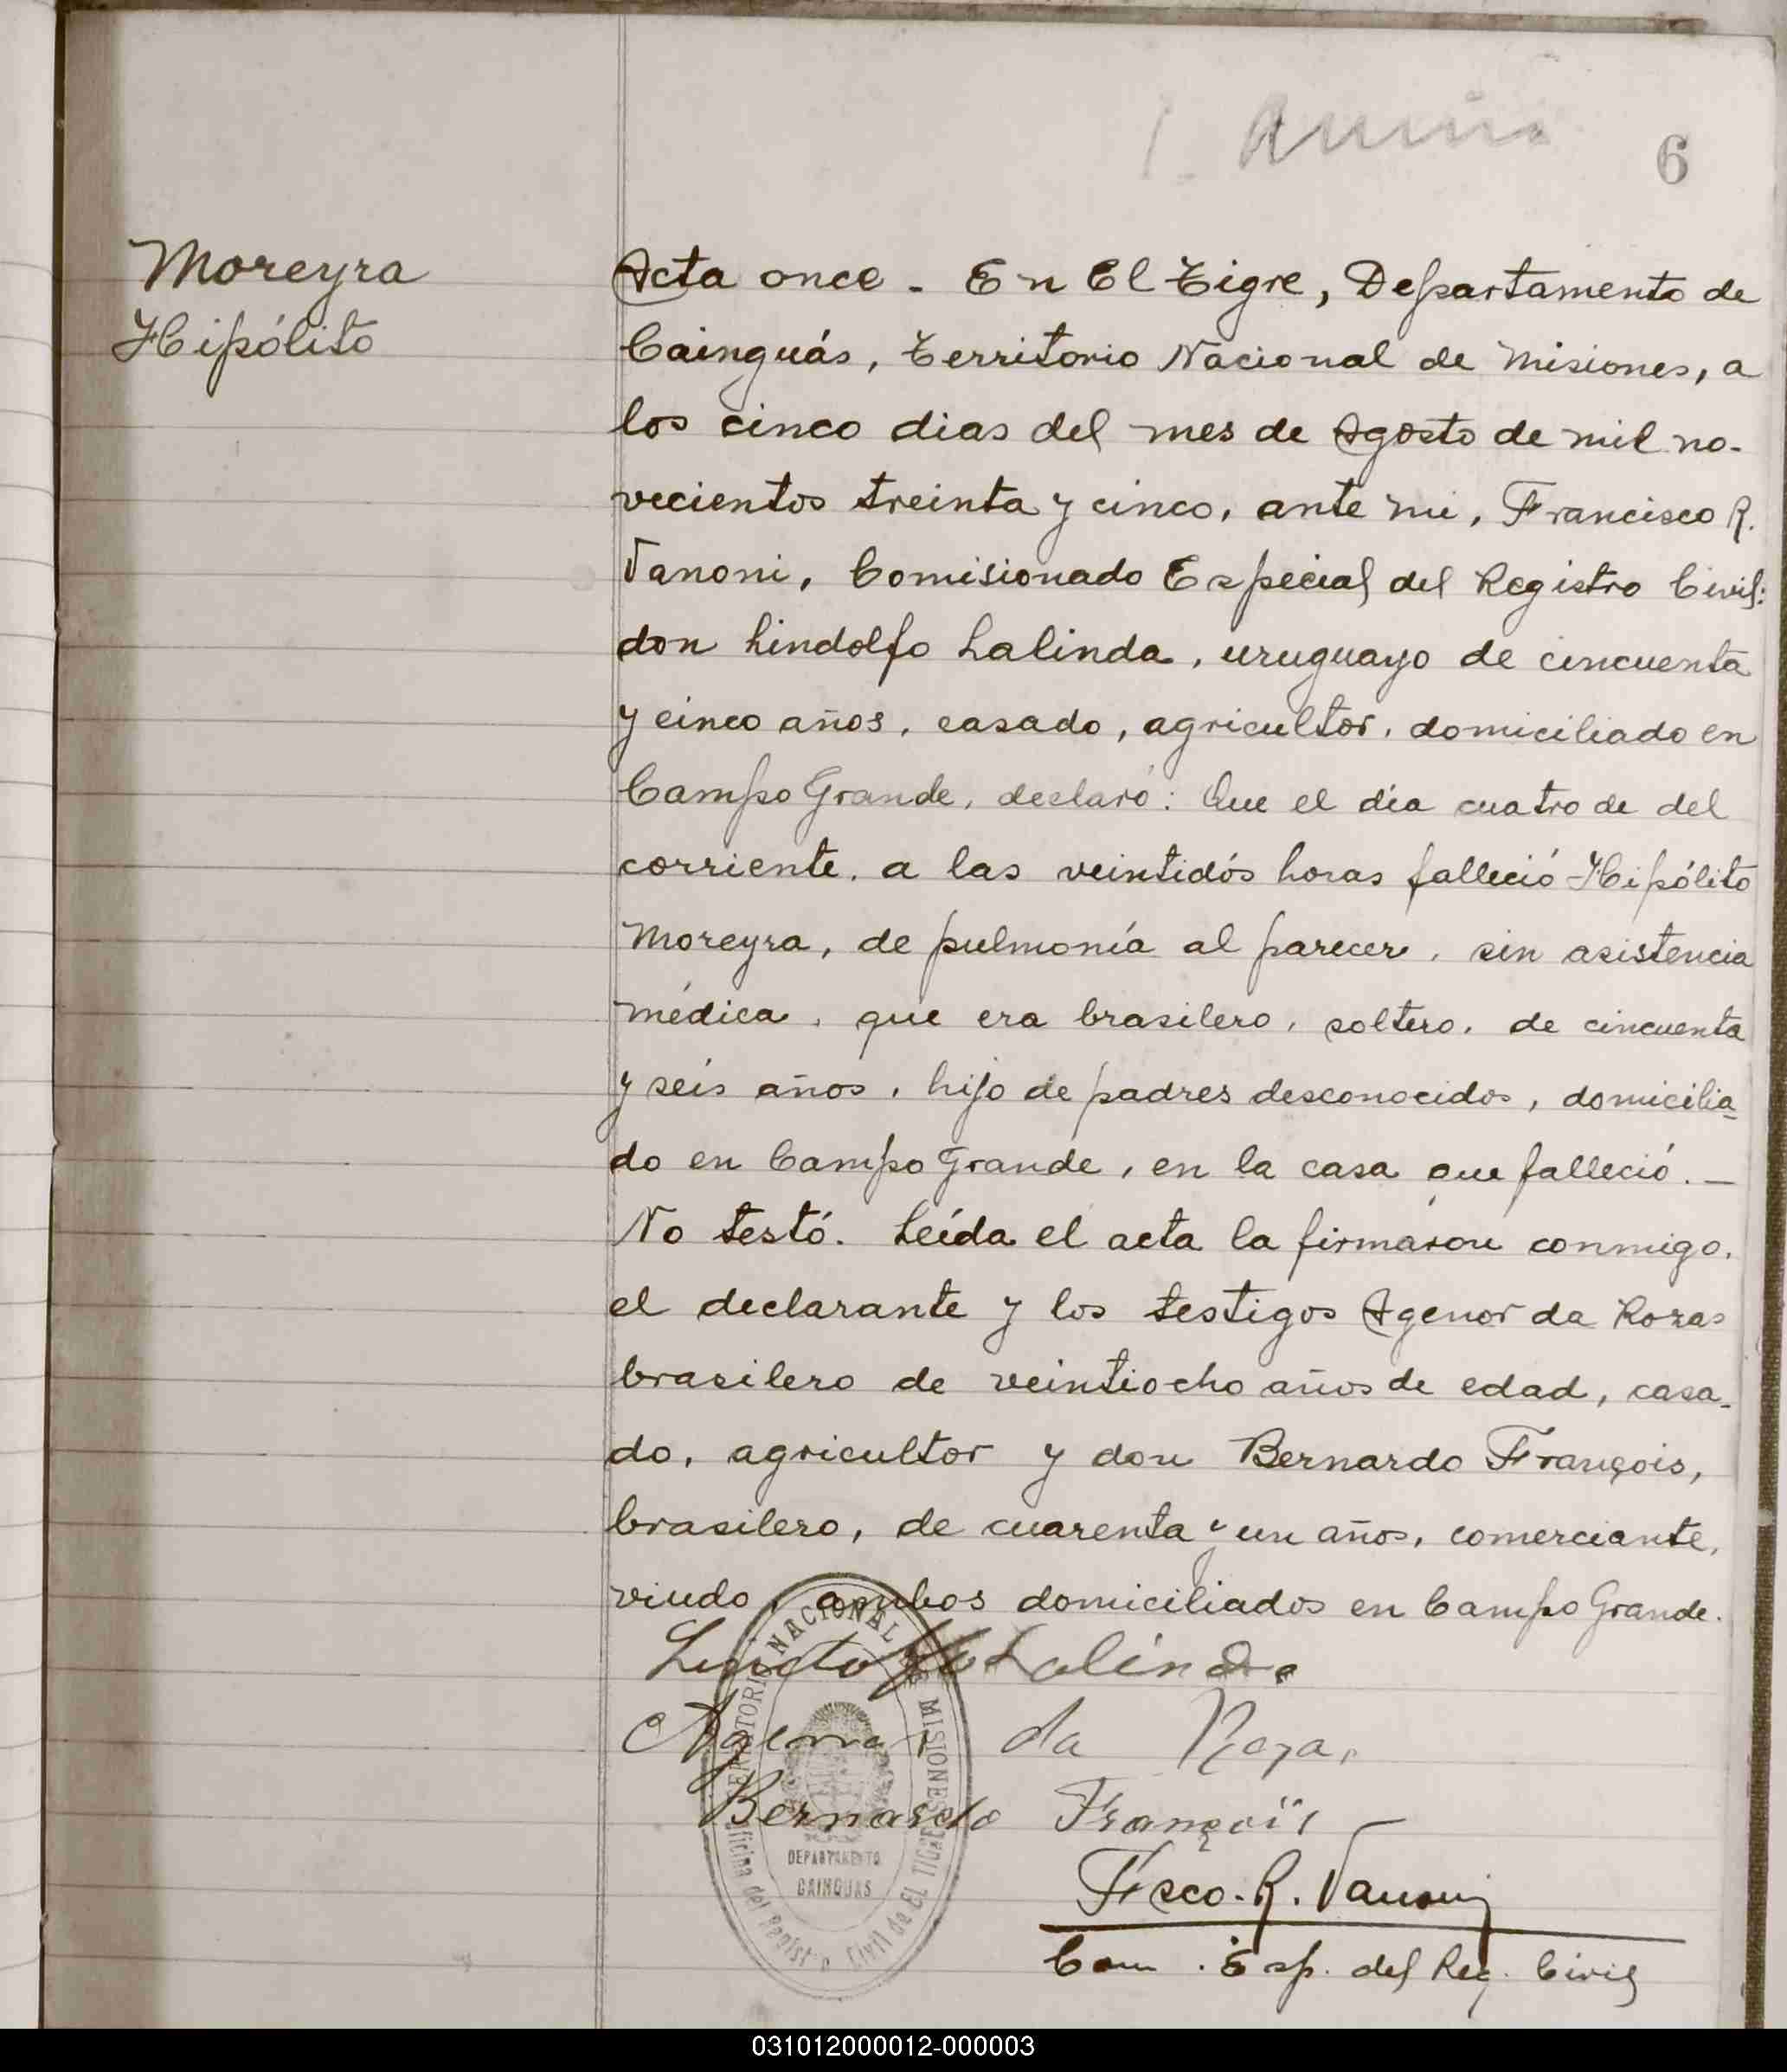 6
Moreyra
Hipólito
Acta once - En El Tigre, Departamento de
Cainguás, Territorio Nacional de Misiones, a
los cinco dias del mes de Agosto de mil no-
vecientos treinta y cinco, ante mi, Francisco R.
Vanoni, Comisionado Especial del Registro Civil:
don Lindolfo Lalinda, uruguayo de cincuenta
y cinco años, casado, agricultor, domiciliado en
Campo Grande, declaró: Que el dia cuatro de del
corriente, a las veintidós horas falleció Hipólito
Moreyra, de pulmonía al parecer, sin asistencia
médica, que era brasilero, soltero, de cincuenta
y seis años, hijo de padres desconocidos, domicilia-
do en Campo Grande, en la casa que falleció. -
No testó. Leída el acta la firmaron conmigo,
el declarante y los testigos Agenor da Rozas
brasilero de veintiocho años de edad, casa-
do, agricultor y don Bernardo François,
brasilero, de cuarenta y un años, comerciante,
viudo, ambos domiciliados en Campo Grande.
Lalinda
Agenor da Roza
Bernardo François
Fsco. R. Vanoni
Com. Esp. del Reg. Civil
TERRITORIO NACIONAL DE MISIONES
DEPARTAMENTO
CAINGUAS
Oficina del Registro Civil de EL TIGRE
031012000012-000003